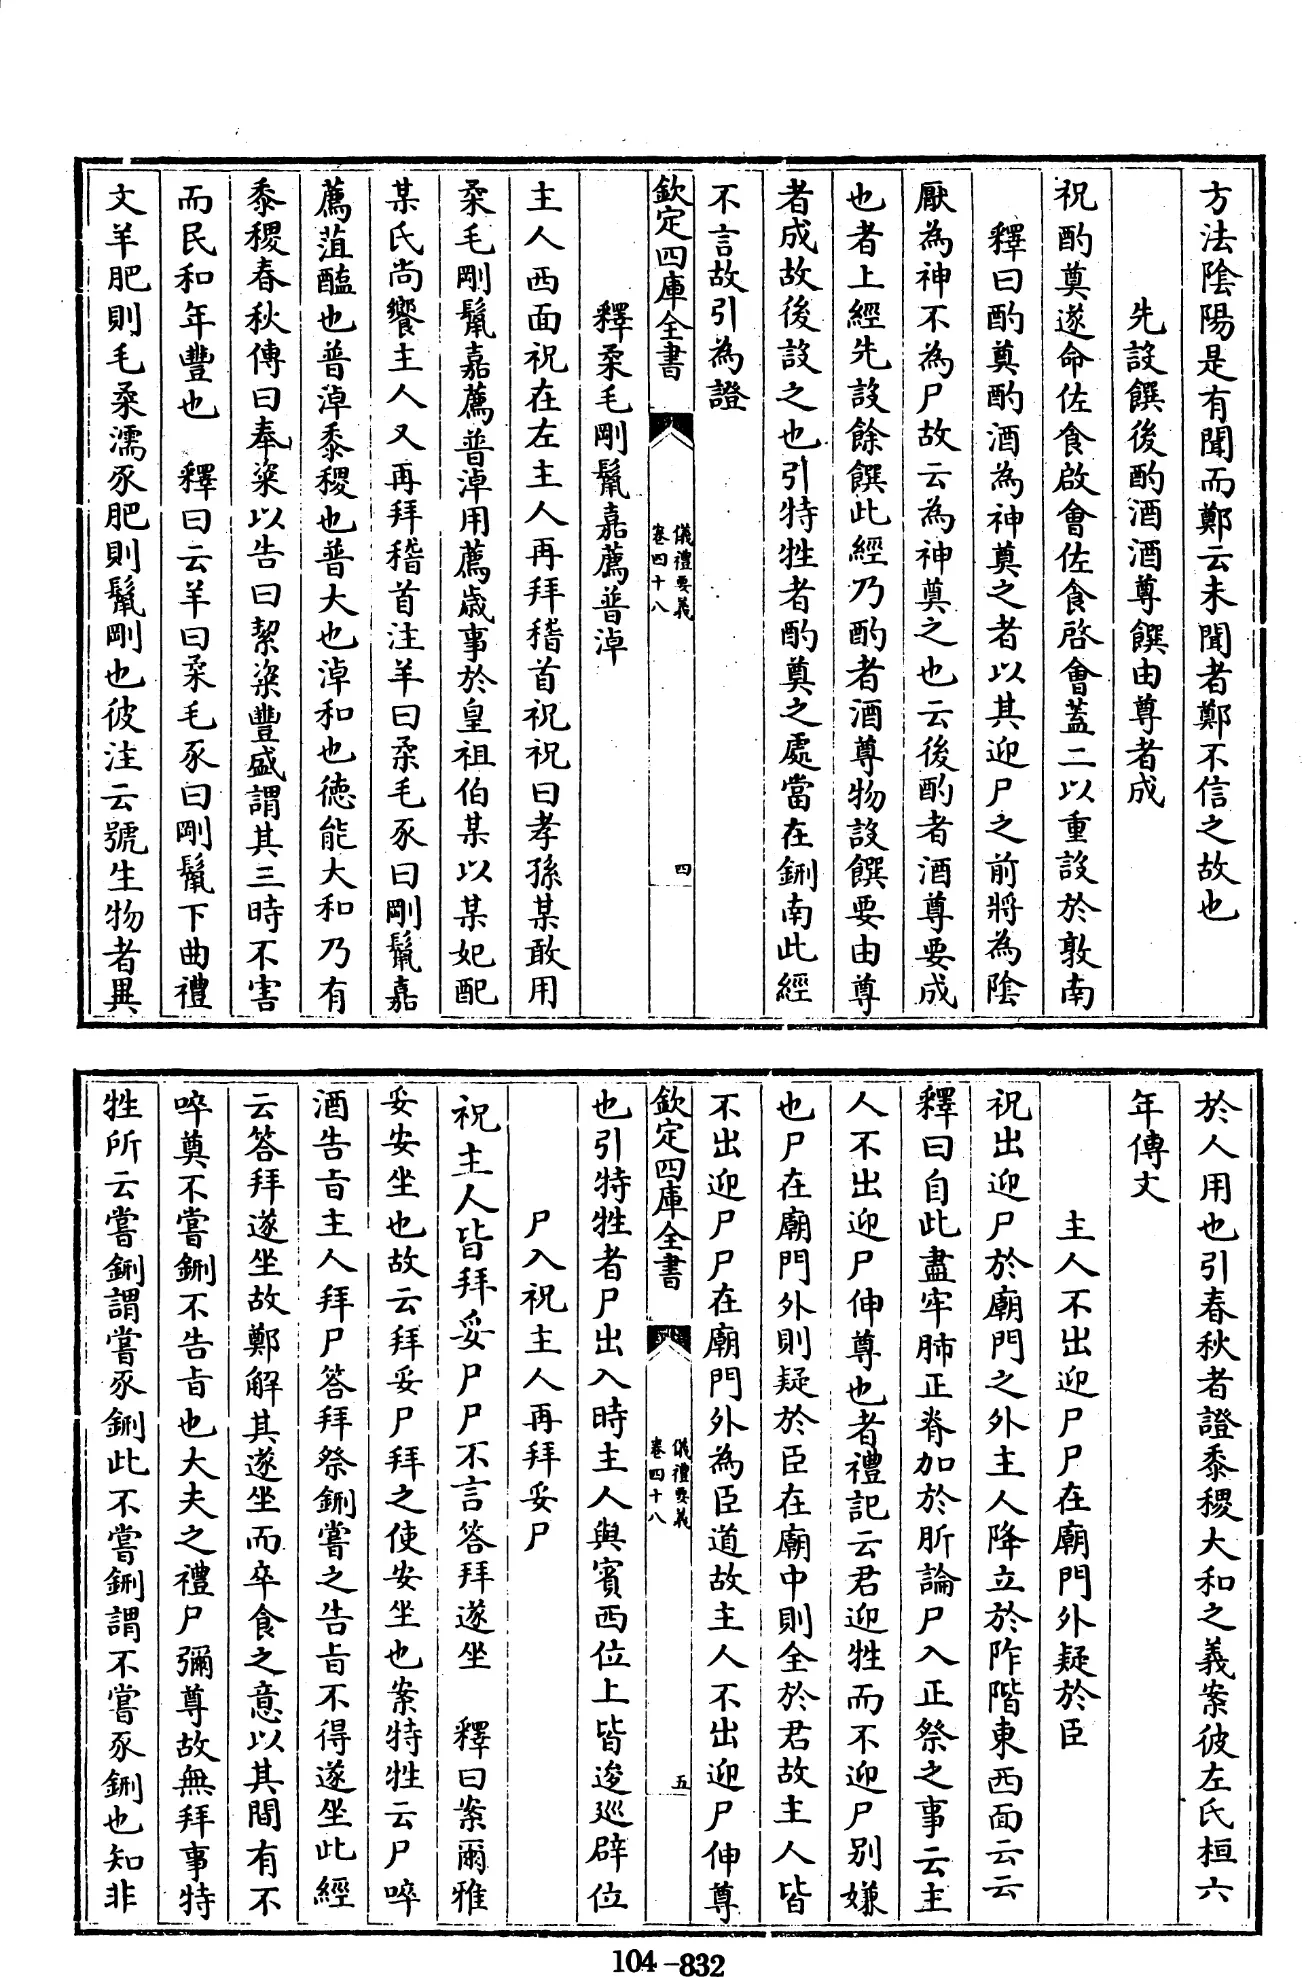 方法陰陽是有聞而鄭云未聞者鄭不信之故也
先設饌後酌酒酒尊饌由尊者成
祝酌奠遂命佐食啟會佐食啓會蓋二以重設於敦南
釋曰酌奠酌酒為神奠之者以其迎尸之前將為陰
厭為神不為尸故云為神奠之也云後酌者酒尊要成
也者上經先設餘饌此經乃酌者酒尊物設饌要由尊
者成故後設之也引特牲者酌奠之處當在鉶南此經
不言故引為證
欽定四庫全書
儀禮要義
卷四十八
四
釋柔毛剛鬣嘉薦普淖
主人西面祝在左主人再拜稽首祝祝曰孝孫某敢用
柔毛剛鬣嘉薦普淖用薦歲事於皇祖伯某以某妃配
某氏尚饗主人又再拜稽首注羊曰柔毛豕曰剛鬣嘉
薦菹醢也普淖黍稷也普大也淖和也德能大和乃有
黍稷春秋傳曰奉粢以告曰絜粢豐盛謂其三時不害
而民和年豐也　釋曰云羊曰柔毛豕曰剛鬣下曲禮
文羊肥則毛柔濡豕肥則鬣剛也彼注云號牲物者異
於人用也引春秋者證黍稷大和之義案彼左氏桓六
年傳文
主人不出迎尸尸在廟門外疑於臣
祝出迎尸於廟門之外主人降立於阼階東西面云云
釋曰自此盡牢肺正脊加於肵論尸入正祭之事云主
人不出迎尸伸尊也者禮記云君迎牲而不迎尸别嫌
也尸在廟門外則疑於臣在廟中則全於君故主人皆
不出迎尸尸在廟門外為臣道故主人不出迎尸伸尊
欽定四庫全書
儀禮要義
卷四十八
五
也引特牲者尸出入時主人與賓西位上皆逡巡辟位
尸入祝主人再拜妥尸
祝主人皆拜妥尸尸不言答拜遂坐　釋曰案爾雅
妥安坐也故云拜妥尸拜之使安坐也案特牲云尸啐
酒告旨主人拜尸答拜祭鉶嘗之告旨不得遂坐此經
云答拜遂坐故鄭解其遂坐而卒食之意以其間有不
啐奠不嘗鉶不告旨也大夫之禮尸彌尊故無拜事特
牲所云嘗鉶謂嘗豕鉶此不嘗鉶謂不嘗豕鉶也知非
104-832